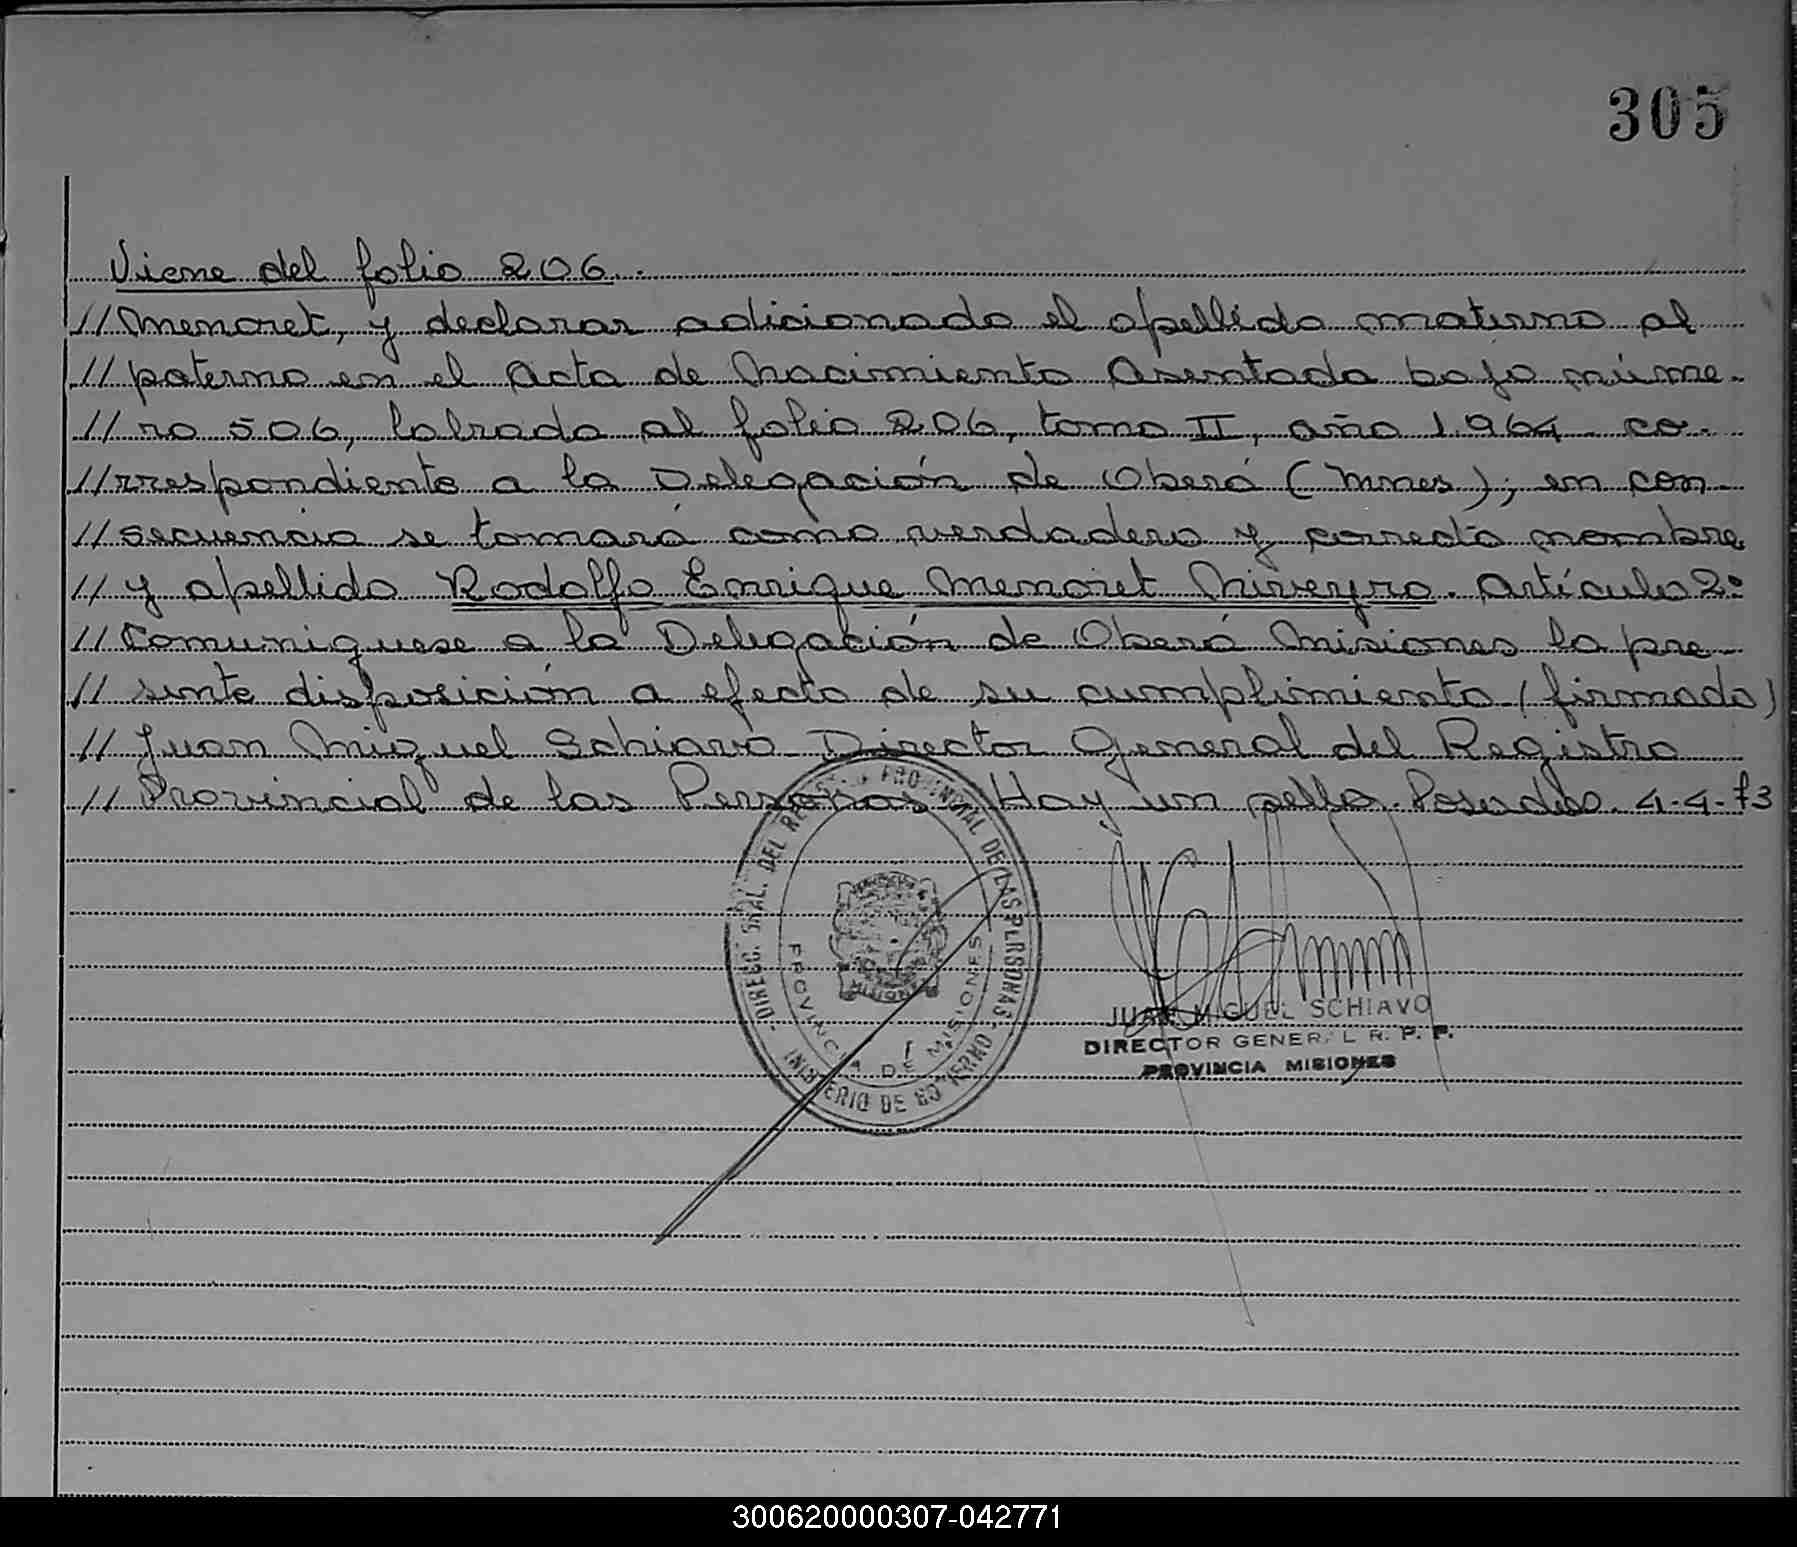 305
Viene del folio 206.
// Menoret, y declarar adicionado el apellido materno al
// paterno en el acta de Nacimiento asentada bajo núme-
// ro 506, labrada al folio 206, tomo II, año 1.964 co-
// rrespondiente a la Delegación de Oberá (Mnes), en con-
// secuencia se tomará como verdadero y correcto nombre
// y apellido Rodolfo Enrique Menoret Niveyro. Artículo 2º
// Comuniquese a la Delegación de Oberá Misiones la pre-
// sente disposición a efecto de su cumplimiento (firmado)
// Juan Miguel Schiavo Director General del Registro
// Provincial de las Personas Hay un sello. Posadas. 4-4-73
DIRECC. GRAL. DEL REGISTRO PROVINCIAL DE LAS PERSONAS
PROVINCIA DE MISIONES
MINISTERIO DE GOBIERNO
JUAN MIGUEL SCHIAVO
DIRECTOR GENERAL R. P. P.
PROVINCIA MISIONES
300620000307-042771